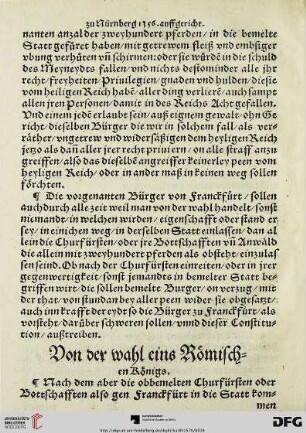 zu Nürnberg 1356. auffgericht.
nanten anzal der zweyhundert pferden/ in die bemelte
Statt gefüret haben/ mit getrewem fleiß vnd embsiger
vbung verhüten vñ schirmen: oder sie würdē in die schuld
des Meyneydts fallen/ vnd nichts destominder alle jhr
recht/ freyheiten/ Priuilegien/ gnaden vnd hulden/ die sie
vom heiligen Reich habē/ aller ding verlierē/ auch sampt
allen jren Personen/ damit in des Reichs Acht gefallen.
Vnd einem jedē erlaubt sein/ auß eignem gewalt/ ohn Ge
richt/ dieselben Bürger die wir in solchem fall/ als ver=
räther/ vngetrew vnd widersäßigen dem heyligen Reich
jetzo als dan aller jrer recht priuiern/ on alle straff anzu
greiffen/ also das dieselbē angreiffer keinerley peen vom
heyligen Reich/ oder in ander maß in keinen weg sollen
förchten.
¶ Die vorgenanten Bürger von Franckfürt/ sollen
auch durch alle zeit weil man von der wahl handelt/ sonst
niemandt/ in welchen wirden/ eigenschafft oder stand er
sey/ in einichen weg/ in derselben Statt einlassen/ dan al
lein die Churfürsten/ oder jre Bottschafften vñ Anwäld
die allein mit zweyhundert pferden als obsteht/ einzulas
sen seind. Ob nach der Churfürsten einreiten/ oder in jrer
gegenwertigkeit/ sonst jemandts in bemelter Statt be=
griffen wirt/ die sollen bemelte Burger/ on verzug/ mit
der that/ von stundan bey aller peen wider sie obgesatzt/
auch inn krafft der eydt so die Bürger zu Franckfürt/ als
vorsteht/ darüber schweren sollen/ vnnd dieser Constitu=
tion/ außtreiben.
Von der wahl eins Römisch=
en Königs.
¶ Nach dem aber die obbemelten Churfürsten oder
Bottschafften also gen Franckfürt in die Statt kom=
men
UNIVERSITÄTS-
BIBLIOTHEK
HEIDELBERG
DFG